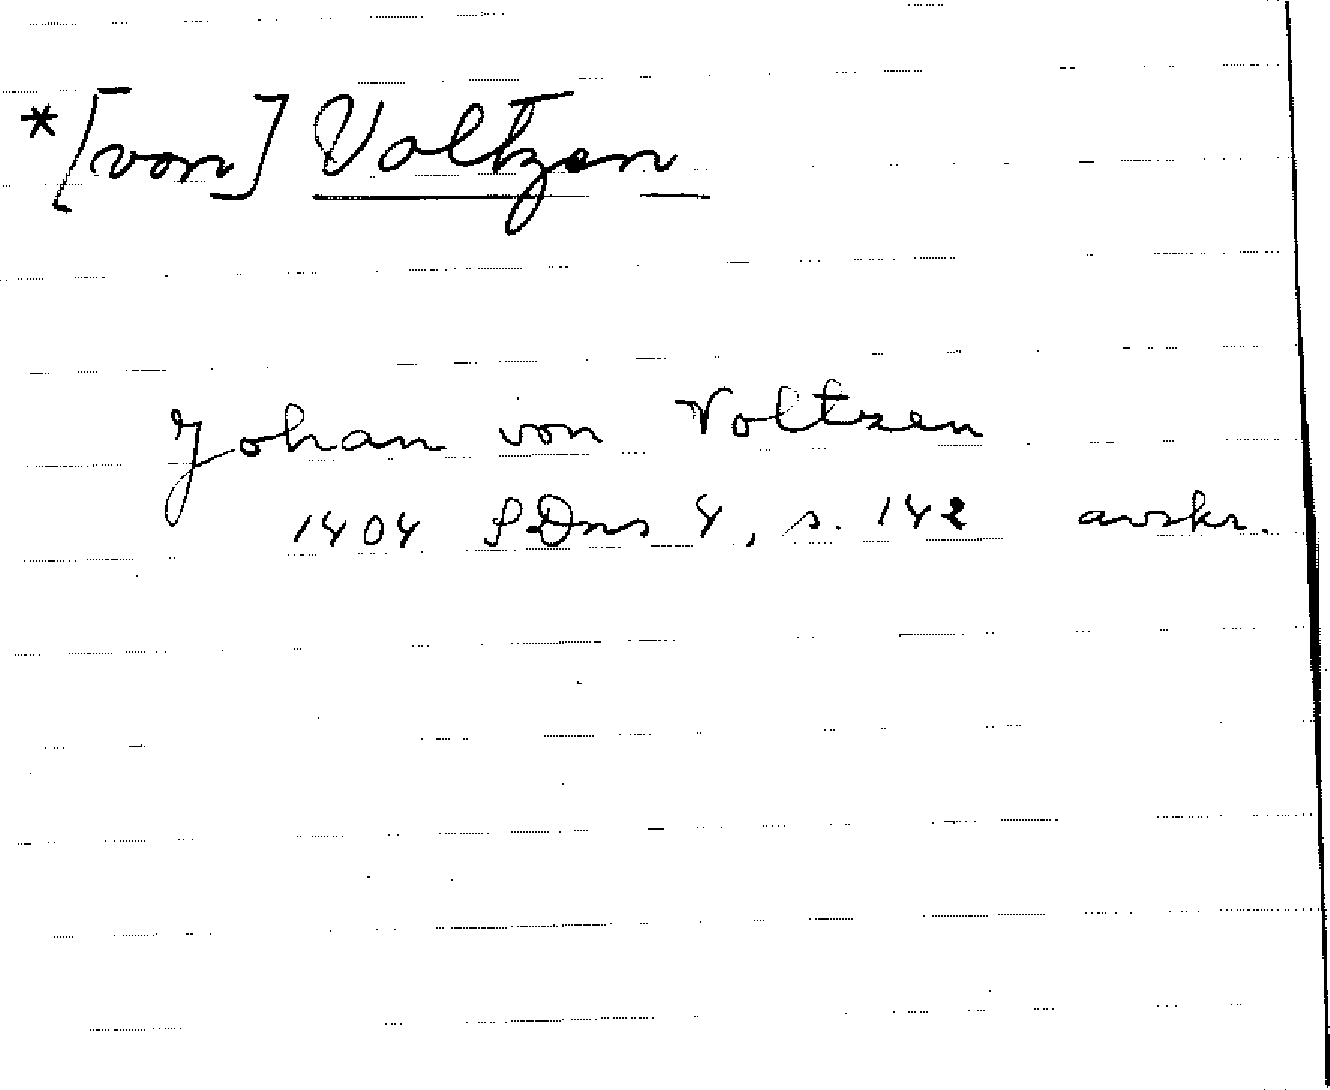 *[von] Voltzen
Johan von Voltzen
1404 SDns 4, s. 142 avskr.